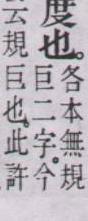 度也。
各本無規
巨二字。今
云規巨也。此許